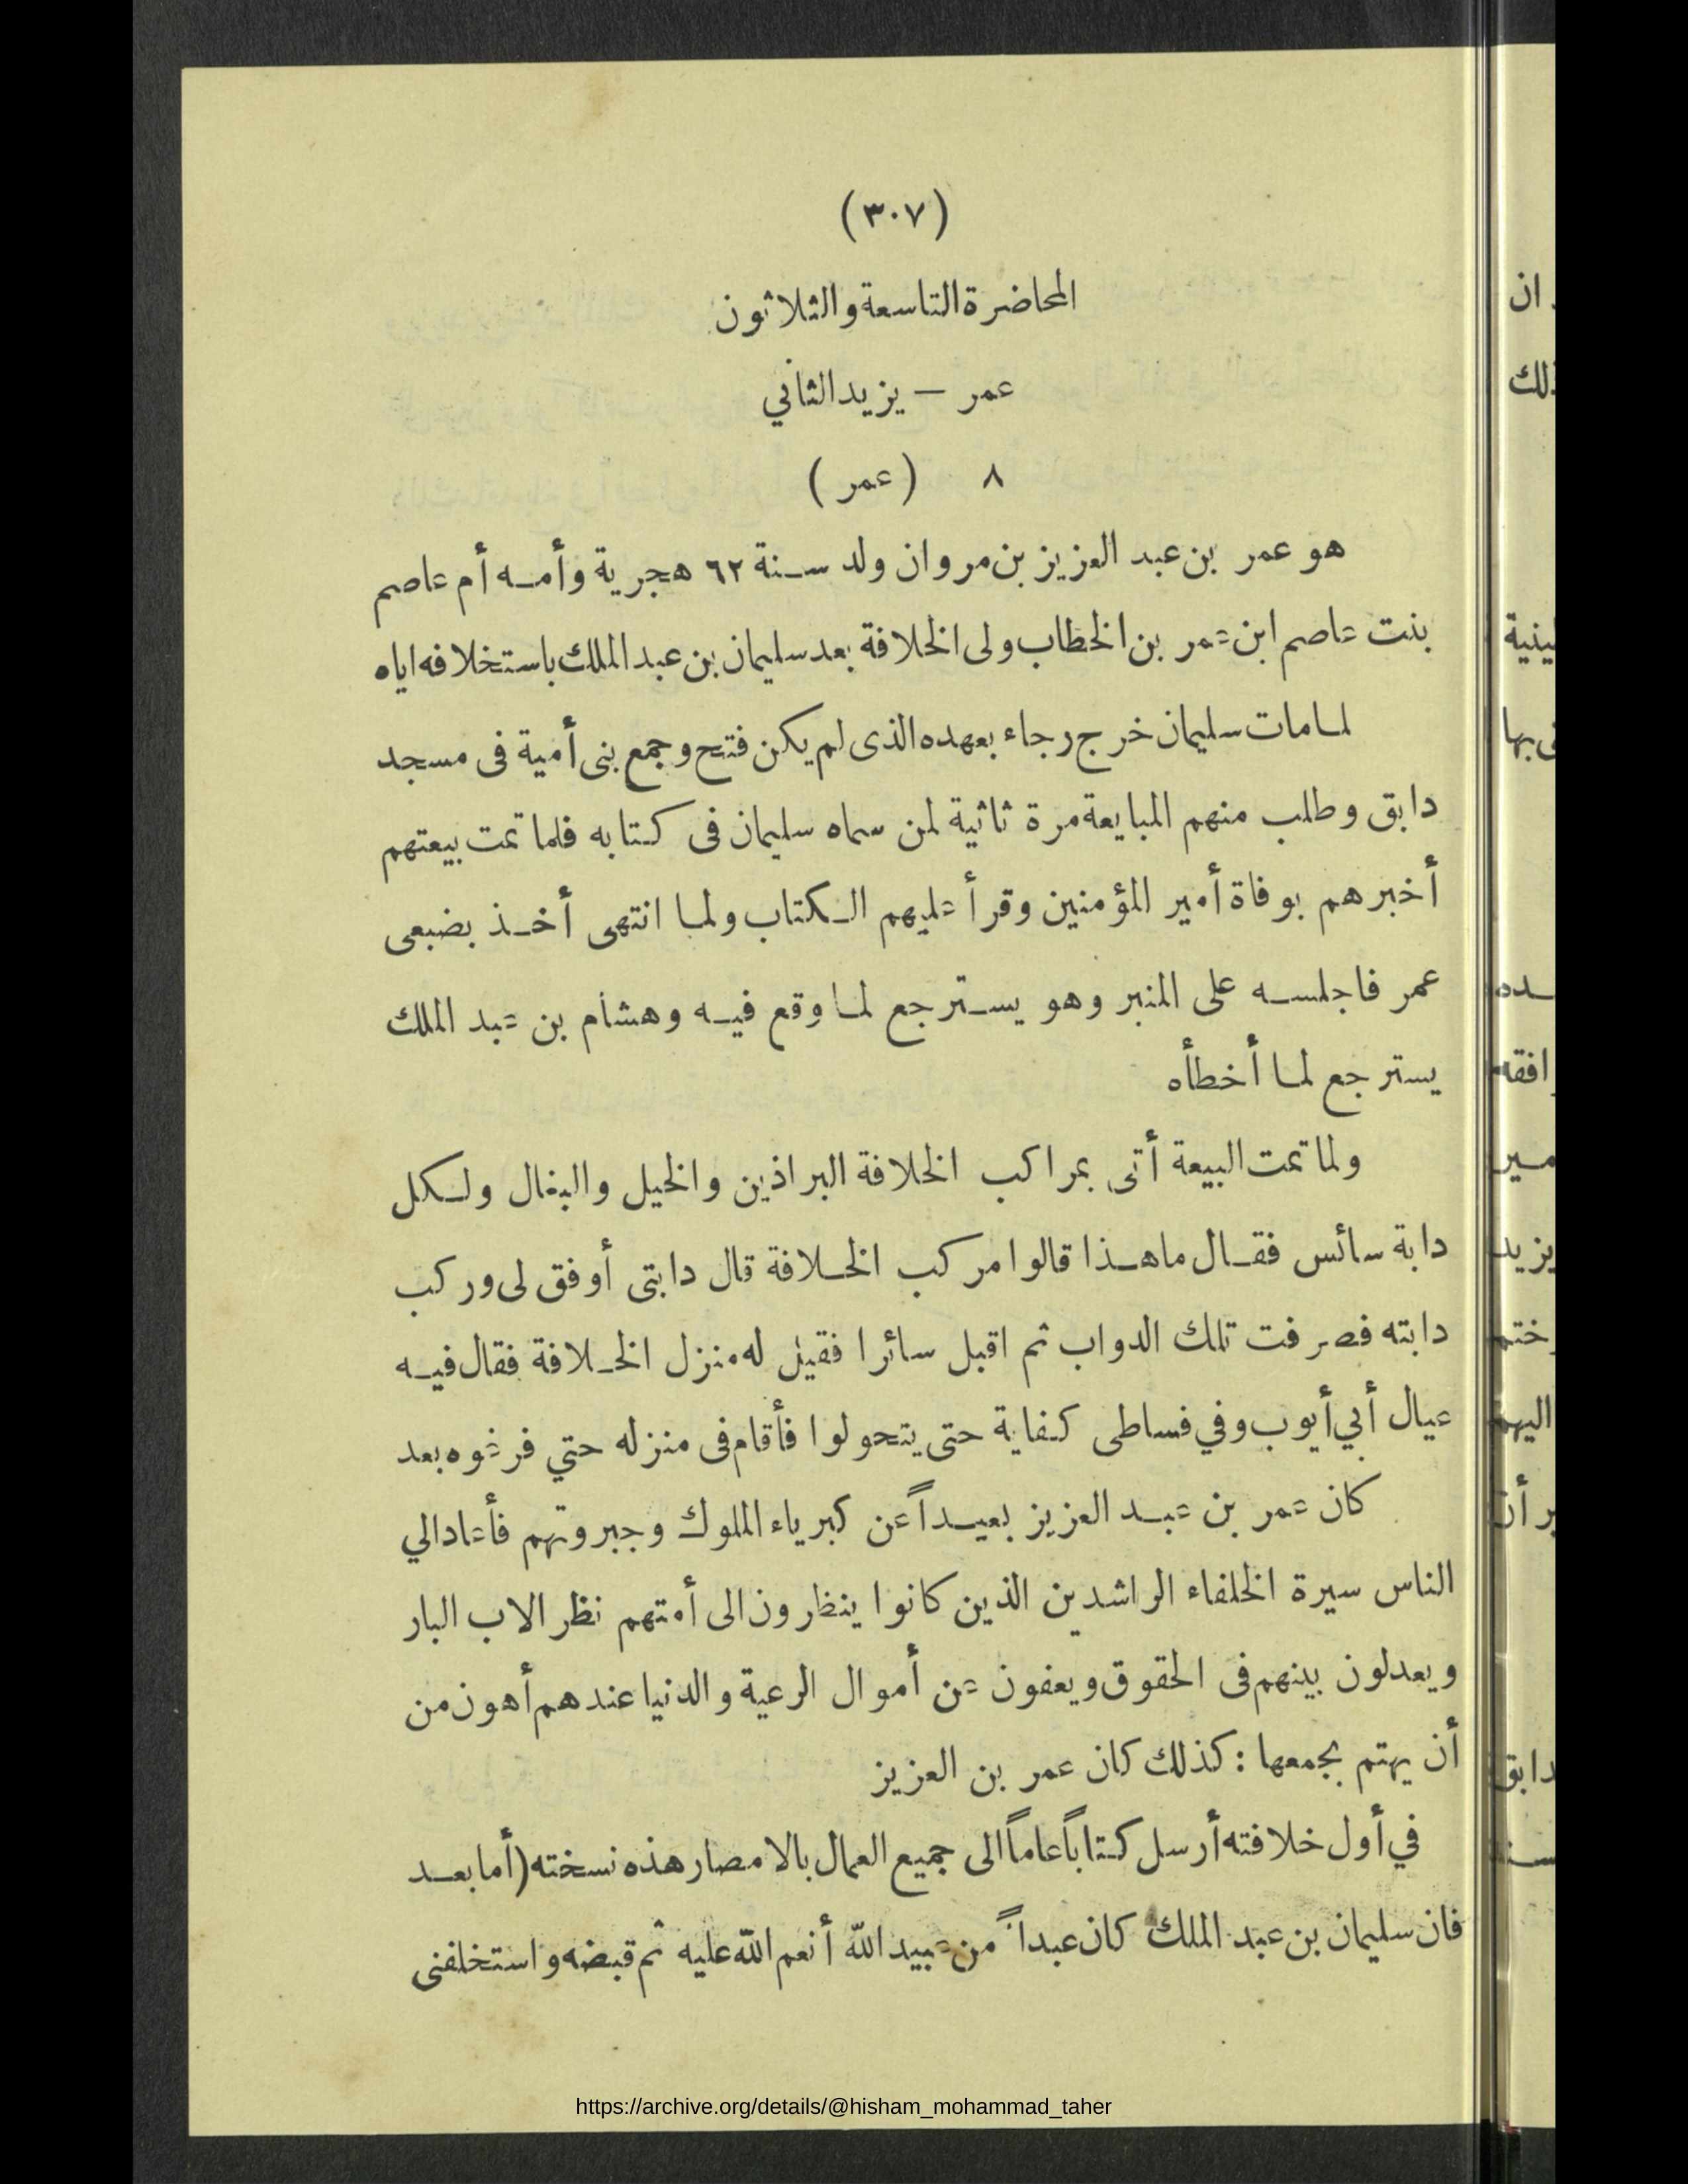 (٣٠٧)
المحاضرة التاسعة والثلاثون
عمر — يزيد الثاني
٨ (عمر)
هو عمر بن عبد العزيز بن مروان ولد سنة ٦٢ هجرية وأمه أم عاصم
بنت عاصم ابن عمر بن الخطاب ولى الخلافة بعد سليمان بن عبد الملك باستخلافه اياه
لما مات سليمان خرج رجاء بعهده الذى لم يكن فتح وجمع بنى أمية فى مسجد
دابق وطلب منهم المبايعة مرة ثاثية لمن سماه سليمان فى كتابه فلما تمت بيعتهم
أخبرهم بوفاة أمير المؤمنين وقرأ عليهم الكتاب ولما انتهى أخذ بضبعى
عمر فاجلسه على المنبر وهو يسترجع لما وقع فيه وهشام بن عبد الملك
يسترجع لما أخطأه
ولما تمت البيعة أتى بمراكب الخلافة البراذين والخيل والبغال ولكل
دابة سائس فقال ما هذا قالوا مركب الخلافة قال دابتى أوفق لى وركب
دابته فصرفت تلك الدواب ثم اقبل سائرا فقيل له منزل الخلافة فقال فيه
عيال أبي أيوب وفي فساطى كفاية حتى يتحولوا فأقام فى منزله حتي فرغوه بعد
كان عمر بن عبد العزيز بعيداً عن كبرياء الملوك وجبروتهم فأعاد الي
الناس سيرة الخلفاء الراشدين الذين كانوا ينظرون الى أمتهم نظر الاب البار
ويعدلون بينهم فى الحقوق ويعفون عن أموال الرعية والدنيا عندهم أهون من
أن يهتم بجمعها : كذلك كان عمر بن العزيز
في أول خلافته أرسل كتاباً عاماً الى جميع العمال بالامصار هذه نسخته (أما بعد
فان سليمان بن عبد الملك كان عبداً من عبيد الله أنعم الله عليه ثم قبضه واستخلفنى
https://archive.org/details/@hisham_mohammad_taher